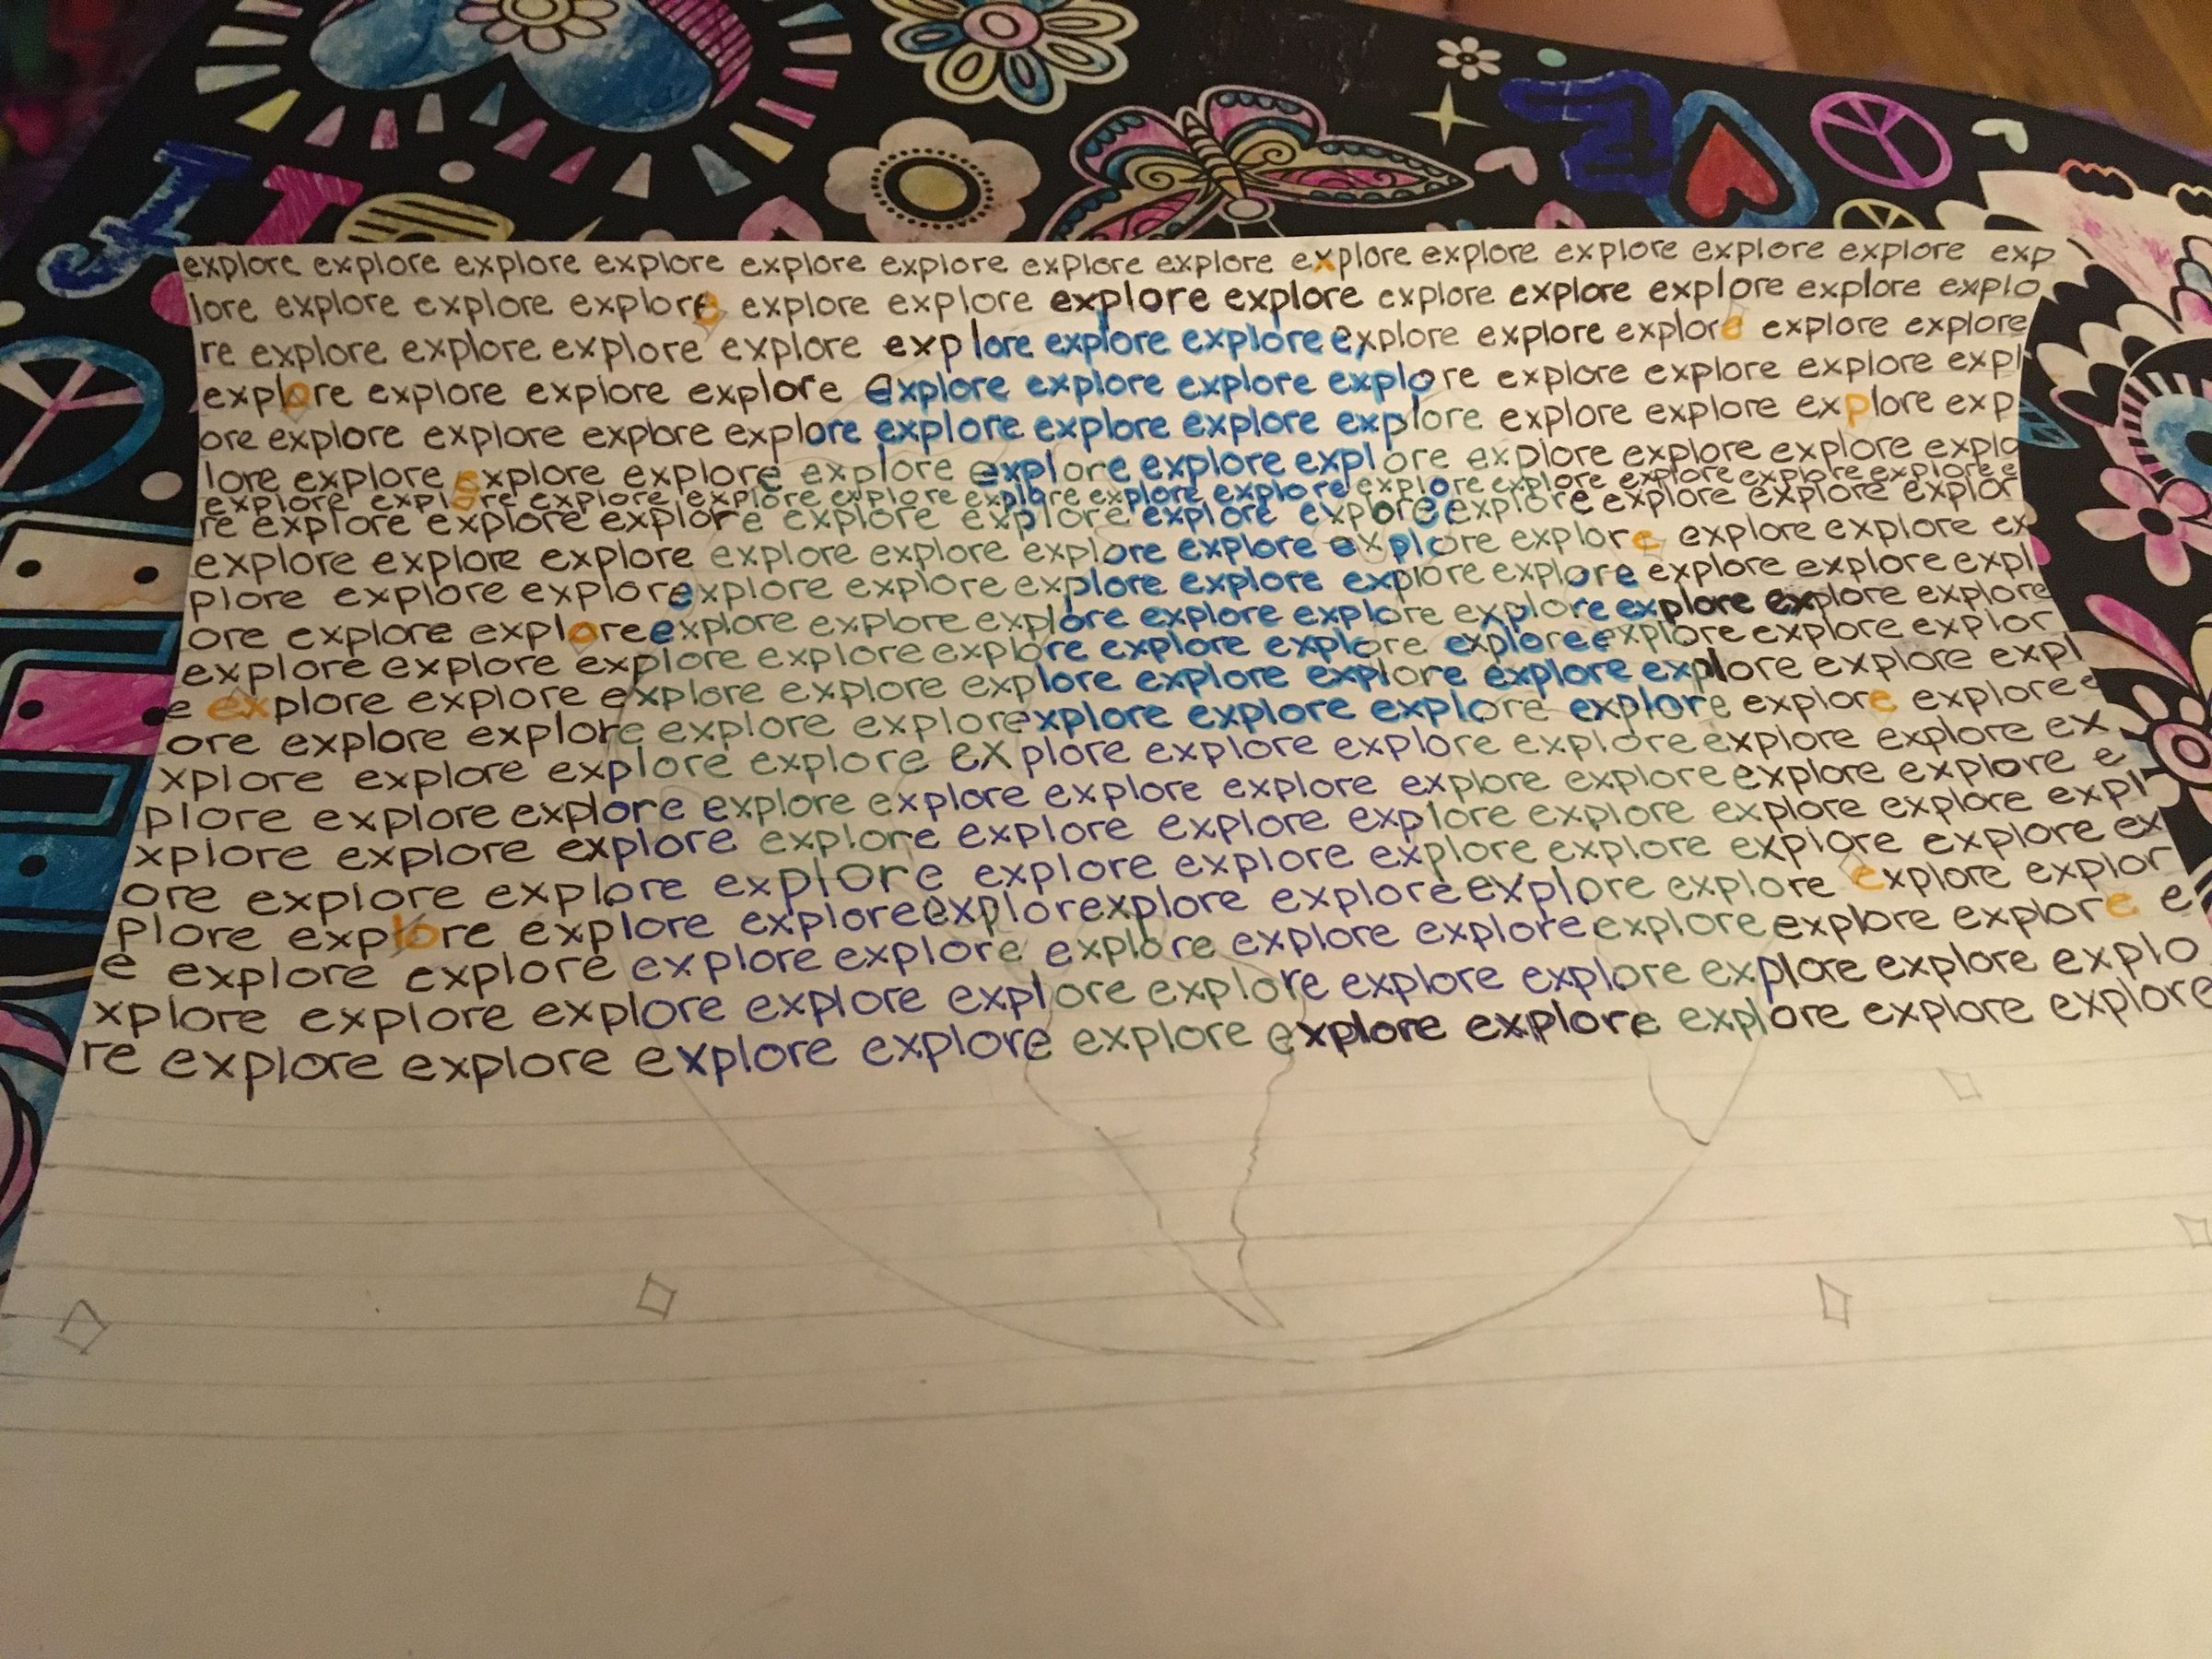 explore explore explore explore explore explore explore explore explore explore explore explore explore exp
lore explore explore explore explore explore explore explore explore explore explore explore explo
re explore explore explore explore explore explore explore explore explore explore explore explore
explore explore explore explore explore explore explore explore explore explore explore expl
ore explore explore explore explore explore explore explore explore explore explore explore exp
lore explore explore explore explore explore explore explore explore explore explore explo
explore explore explore explore explore explore explore explore explore explore explore explore explore e
re explore explore explore explore explore explore explore explore explore explore explor
explore explore explore explore explore explore explore explore explore explore explore ex
plore explore explore explore explore explore explore explore explore explore explore expl
ore explore explore explore explore explore explore explore explore explore explore explore
explore explore explore explore explore explore explore explore explore explore explor
e explore explore explore explore explore explore explore explore explore explore expl
ore explore explore explore explore explore explore explore explore explore explore
xplore explore explore explore explore explore explore explore explore explore ex
plore explore explore explore explore explore explore explore explore explore e
xplore explore explore explore explore explore explore explore explore expl
ore explore explore explore explore explore explore explore explore explore ex
plore explore explore explore explorexplore explore explore explore explore explor
e explore explore explore explore explore explore explore explore explore explore e
xplore explore explore explore explore explore explore explore explore explore explo
re explore explore explore explore explore explore explore explore explore explore